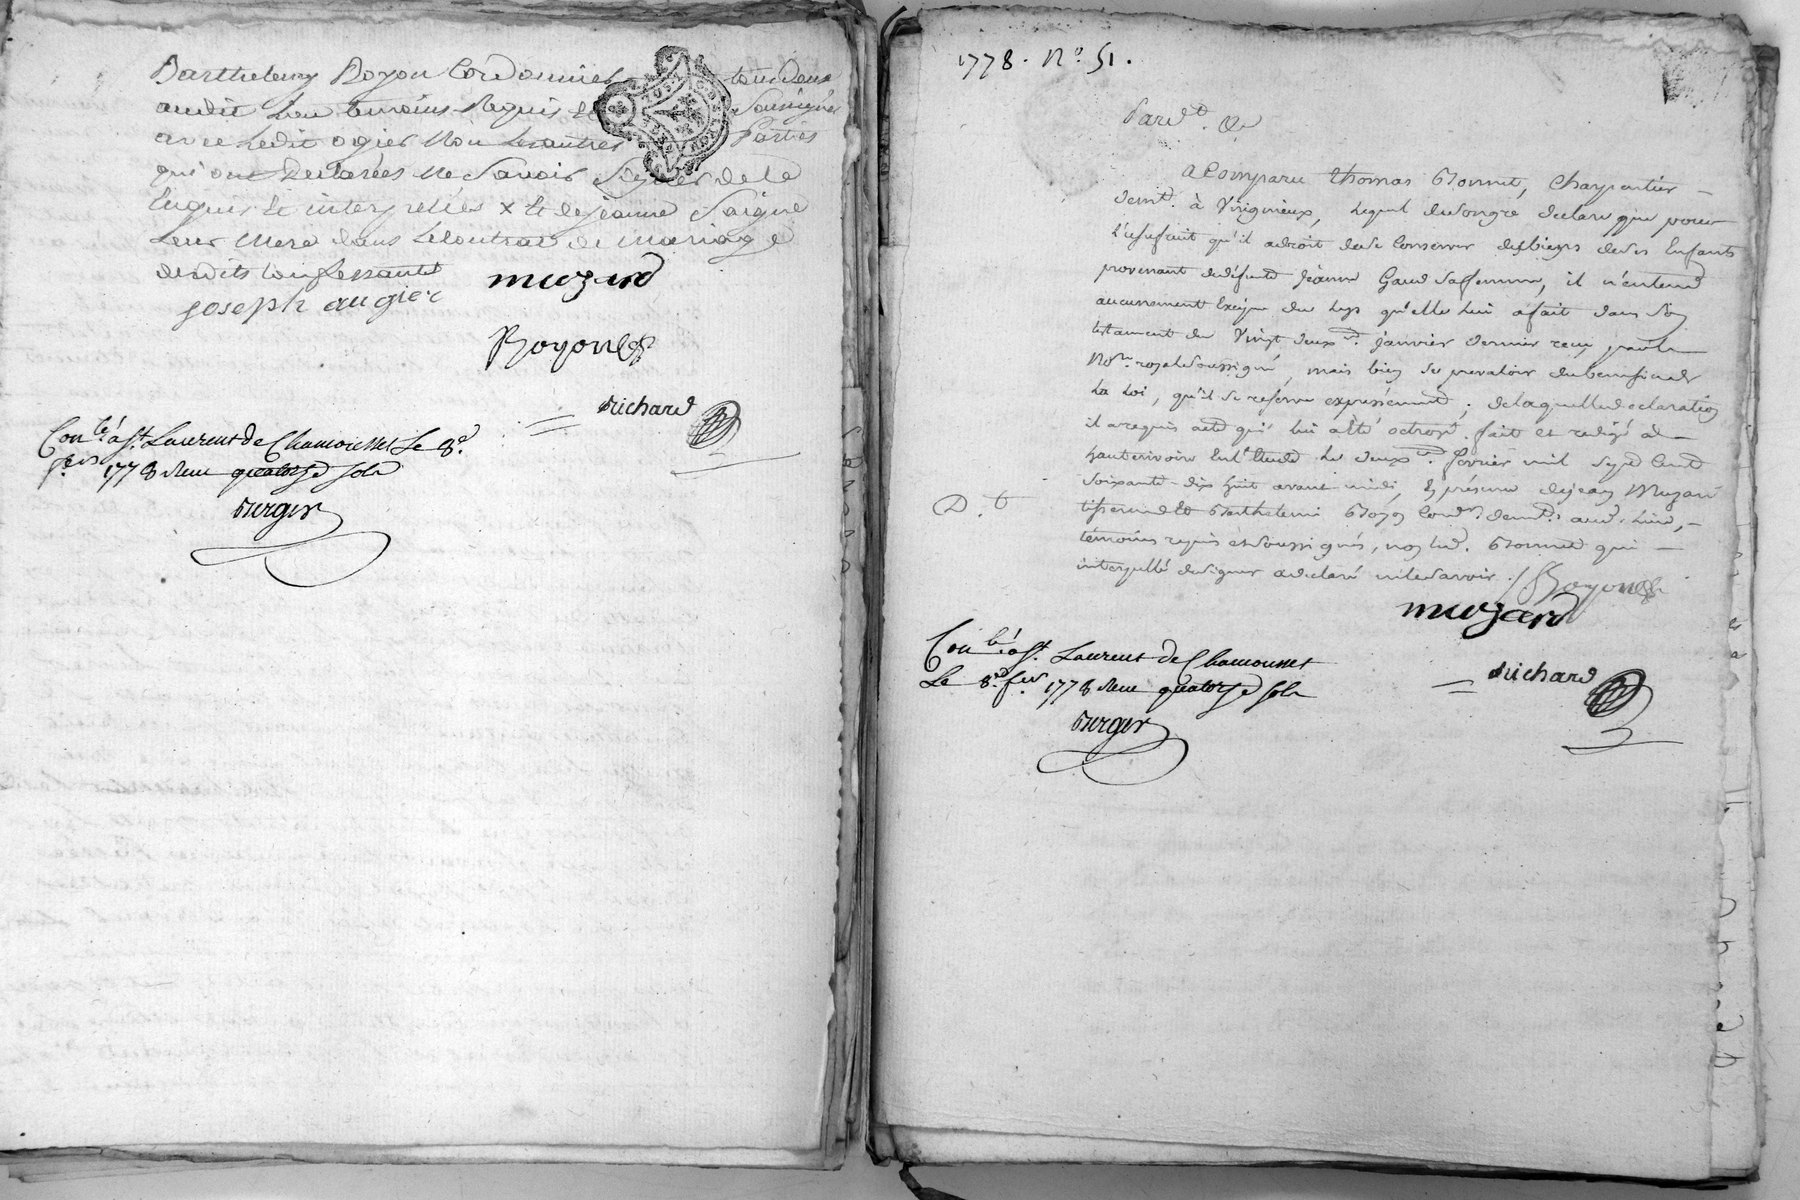 Barthelemy Royon Cordonnier tous deux
audit Lieu temoins Requis et Soussignés
avec Ledit ogier Non Les autres Parties
qui ont declarées Ne Savoir Signer de ce
Enquis et interpellés x et de jeanne
Leur Mere dans Le Contrat de Mariage
desdits Confessants
joseph augier
muzard
Royon
Richard
Con.lé à St. Laurent de Chamousset Le 8.e
fev. 1778 Reçu quatorze sols
Burger
1778. No. 51.
Pard.t &
a Comparu thomas Bonnet, Charpentier -
demt. à Virignieux, Lequel de son gré declare que pour
L'usufruit qu'il a droit de se Conserver des biens de ses Enfants
provenant de défunte jeanne sa femme, il n'entend
aucunement Exiger du Legs qu'elle Lui a fait dans son
testament du Vingt deux janvier dernier reçu par le
No.re royal soussigné, mais bien se prevaloir du benefice de
La Loi, qu'il se réserve expressément; de laquelle declaration
il a requis acte qui Lui a été octroyé. fait et redigé a -
hauterivoire En L'Etude Le deux fevrier mil Sept Cent
Soixante-dix huit avant midi, En présence de jean Muzard
D. t
tisserand Et Barthelemi Royon Cord.r demt. aud. Lieu, -
témoins requis et Soussignés, non Led. Bonnet qui -
interpellé de signer a declaré ne le savoir.
Royon
muzard
Richard
Con.lé à St. Laurent de Chamousset
Le 8.e fev. 1778 Reçu quatorze sols
Burger